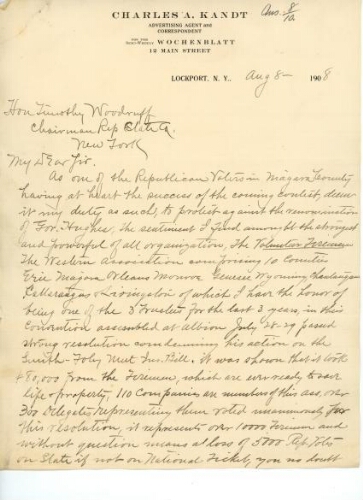 CHARLES A. KANDT
Ans. 8/10
ADVERTISING AGENT AND
CORRESPONDENT
FOR THE
SEMI-WEEKLY WOCHENBLATT
12 MAIN STREET
LOCKPORT, N. Y., Aug 8 1908
Hon Timothy Woodruff
Chairman Rep State Co.
New York
My Dear Sir.
As one of the Republican Voters in Niagara County
having at heart the success of the coming contest, deem
it my duty as such, to protest against the renomination
of Gov. Hughes, the sentiment I find amongst the strongest
and powerful of all organization, the Volunteer Firemen
The Western Association comprising 10 Counties
Erie Niagara Orleans Monroe Genesee Wyoming Chautauqua
Cattaraugus & Livingston of which I have the honor of
being one of the 3 Trustees for the last 3 years, in this
Convention assembled at Albion July 28-29 passed
strong resolution condemning his action on the
Smith-Foley Mut Ins. Bill. it was shown that it took
$80,000 from the Firemen, which are ever ready to save
life & property, 110 Companies are members of this ass, over
300 Delegates representing them voted unanimously for
this resolution, it represents over 10000 Firemen and
without question means a loss of 5000 Rep. Votes
on State if not on National Ticket, you no doubt